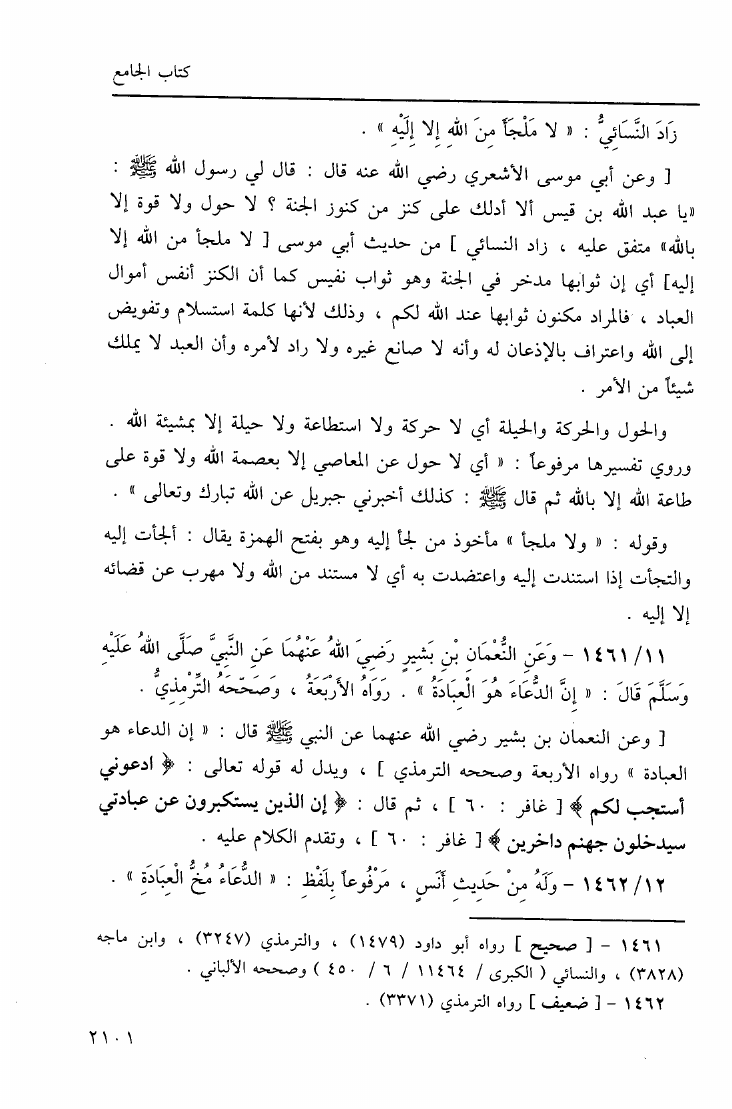 كتاب الجامع
زَادَ النَّسَائِيُّ : « لا مَلْجَأَ مِنَ اللهِ إِلا إِلَيْهِ » .
[ وعن أبي موسى الأشعري رضي الله عنه قال : قال لي رسول الله ﷺ :
«يا عبد الله بن قيس ألا أدلك على كنز من كنوز الجنة ؟ لا حول ولا قوة إلا
بالله» متفق عليه ، زاد النسائي ] من حديث أبي موسى [ لا ملجأ من الله إلا
إليه] أي إن ثوابها مدخر في الجنة وهو ثواب نفيس كما أن الكنز أنفس أموال
العباد ، فالمراد مكنون ثوابها عند الله لكم ، وذلك لأنها كلمة استسلام وتفويض
إلى الله واعتراف بالإذعان له وأنه لا صانع غيره ولا راد لأمره وأن العبد لا يملك
شيئاً من الأمر .
والحول والحركة والحيلة أي لا حركة ولا استطاعة ولا حيلة إلا بمشيئة الله .
وروي تفسيرها مرفوعاً : « أي لا حول عن المعاصي إلا بعصمة الله ولا قوة على
طاعة الله إلا بالله ثم قال ﷺ : كذلك أخبرني جبريل عن الله تبارك وتعالى » .
وقوله : « ولا ملجأ » مأخوذ من لجأ إليه وهو بفتح الهمزة يقال : ألجأت إليه
والتجأت إذا استندت إليه واعتضدت به أي لا مستند من الله ولا مهرب عن قضائه
إلا إليه .
١٤٦١/١١ – وَعَنِ النُّعْمَانِ بْنِ بَشِيرٍ رَضِيَ اللهُ عَنْهُمَا عَنِ النَّبِيَّ صَلَّى اللهُ عَلَيْهِ
وَسَلَّمَ قَالَ : « إِنَّ الدُّعَاءَ هُوَ الْعِبَادَةُ » . رَوَاهُ الأَرْبَعَةُ ، وَصَحّحَهُ التِّرْمِذِيُّ .
[ وعن النعمان بن بشير رضي الله عنهما عن النبي ﷺ قال : « إن الدعاء هو
العبادة » رواه الأربعة وصححه الترمذي ] ، ويدل له قوله تعالى : ﴿ ادعوني
أستجب لكم ﴾ [ غافر : ٦٠ ] ، ثم قال : ﴿ إن الذين يستكبرون عن عبادتي
سيدخلون جهنم داخرين ﴾ [ غافر : ٦٠ ] ، وتقدم الكلام عليه .
١٤٦٢/١٢ – وَلَهُ مِنْ حَدِيثِ أَنَسٍ ، مَرْفُوعاً بِلَفْظِ : « الدُّعَاءُ مُخُّ الْعِبَادَةِ » .
١٤٦١ – [ صحيح ] رواه أبو داود (١٤٧٩) ، والترمذي (٣٢٤٧) ، وابن ماجه
(٣٨٢٨) ، والنسائي ( الكبرى / ١١٤٦٤ / ٦ / ٤٥٠ ) وصححه الألباني .
١٤٦٢ – [ ضعيف ] رواه الترمذي (٣٣٧١) .
٢١٠١